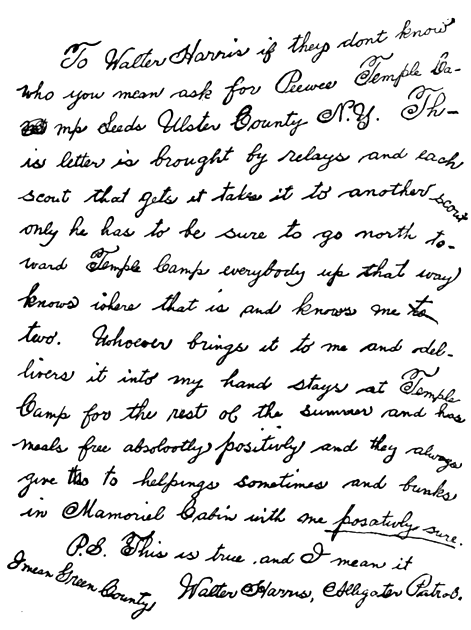 To Walter Harris if they dont know
who you mean ask for Peewee Temple Ca-
mp Leeds Ulster County N.Y. Th-
is letter is brought by relays and each
scout that gets it takes it to another scout
only he has to be sure to go north to-
ward Temple Camp everybody up that way
knows where that is and knows me to
two. Whoever brings it to me and del-
livers it into my hand stays at Temple
Camp for the rest of the summer and has
meals free absolootly positivly and they always
give two to helpings sometimes and bunks
in Mamoriel Cabin with me posativly sure.
P.S. This is true and I mean it
I mean Green County
Walter Harris, Alligater Patrol.